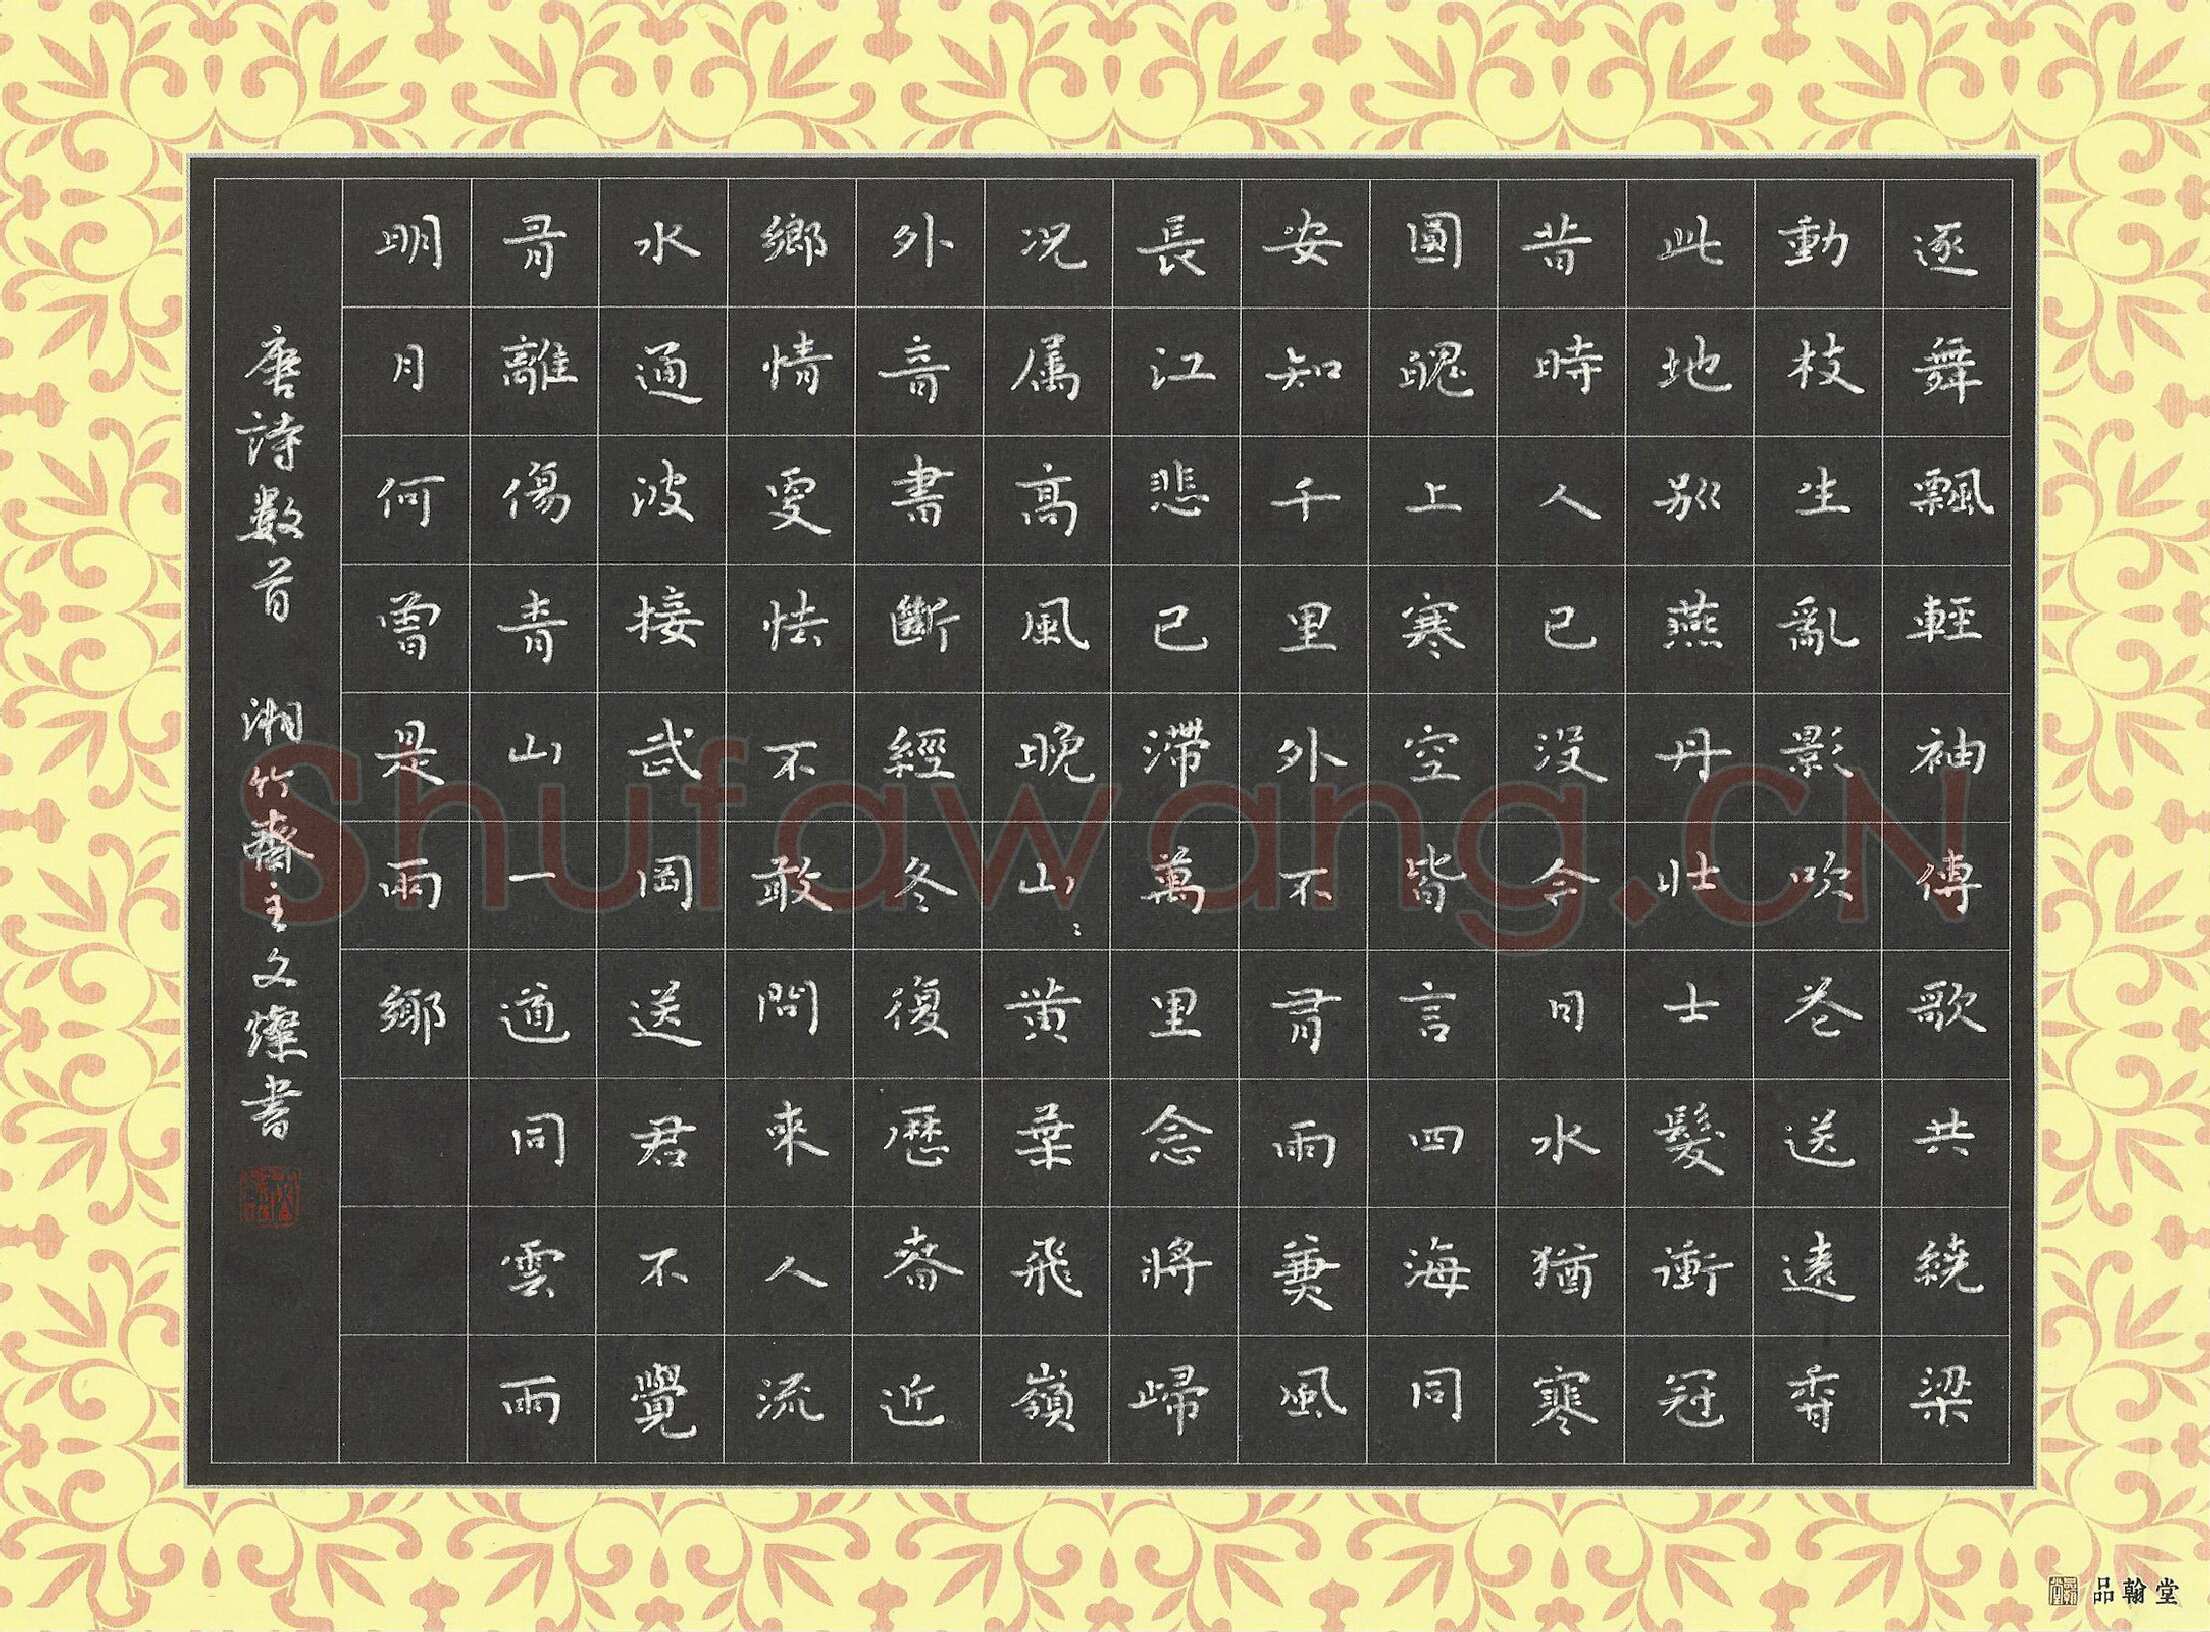 逐舞飄輕袖傳歌共繞梁
動枝生亂影吹花送遠香
此地別燕丹壮士髮衝冠
昔時人已没今日水猶寒
圓魄上寒空皆言四海同
安知千里外不有雨兼風
長江悲已滯萬里念將歸
况属高風晚山〻黄葉飛嶺
外音書斷經冬復歷春近
鄉情更怯不敢問來人流
水通波接武岡送君不覺
有離傷青山一道同雲雨
明月何曾是兩鄉
唐詩數首 湘竹齋主文燦書
Shufawang.CN
品翰堂